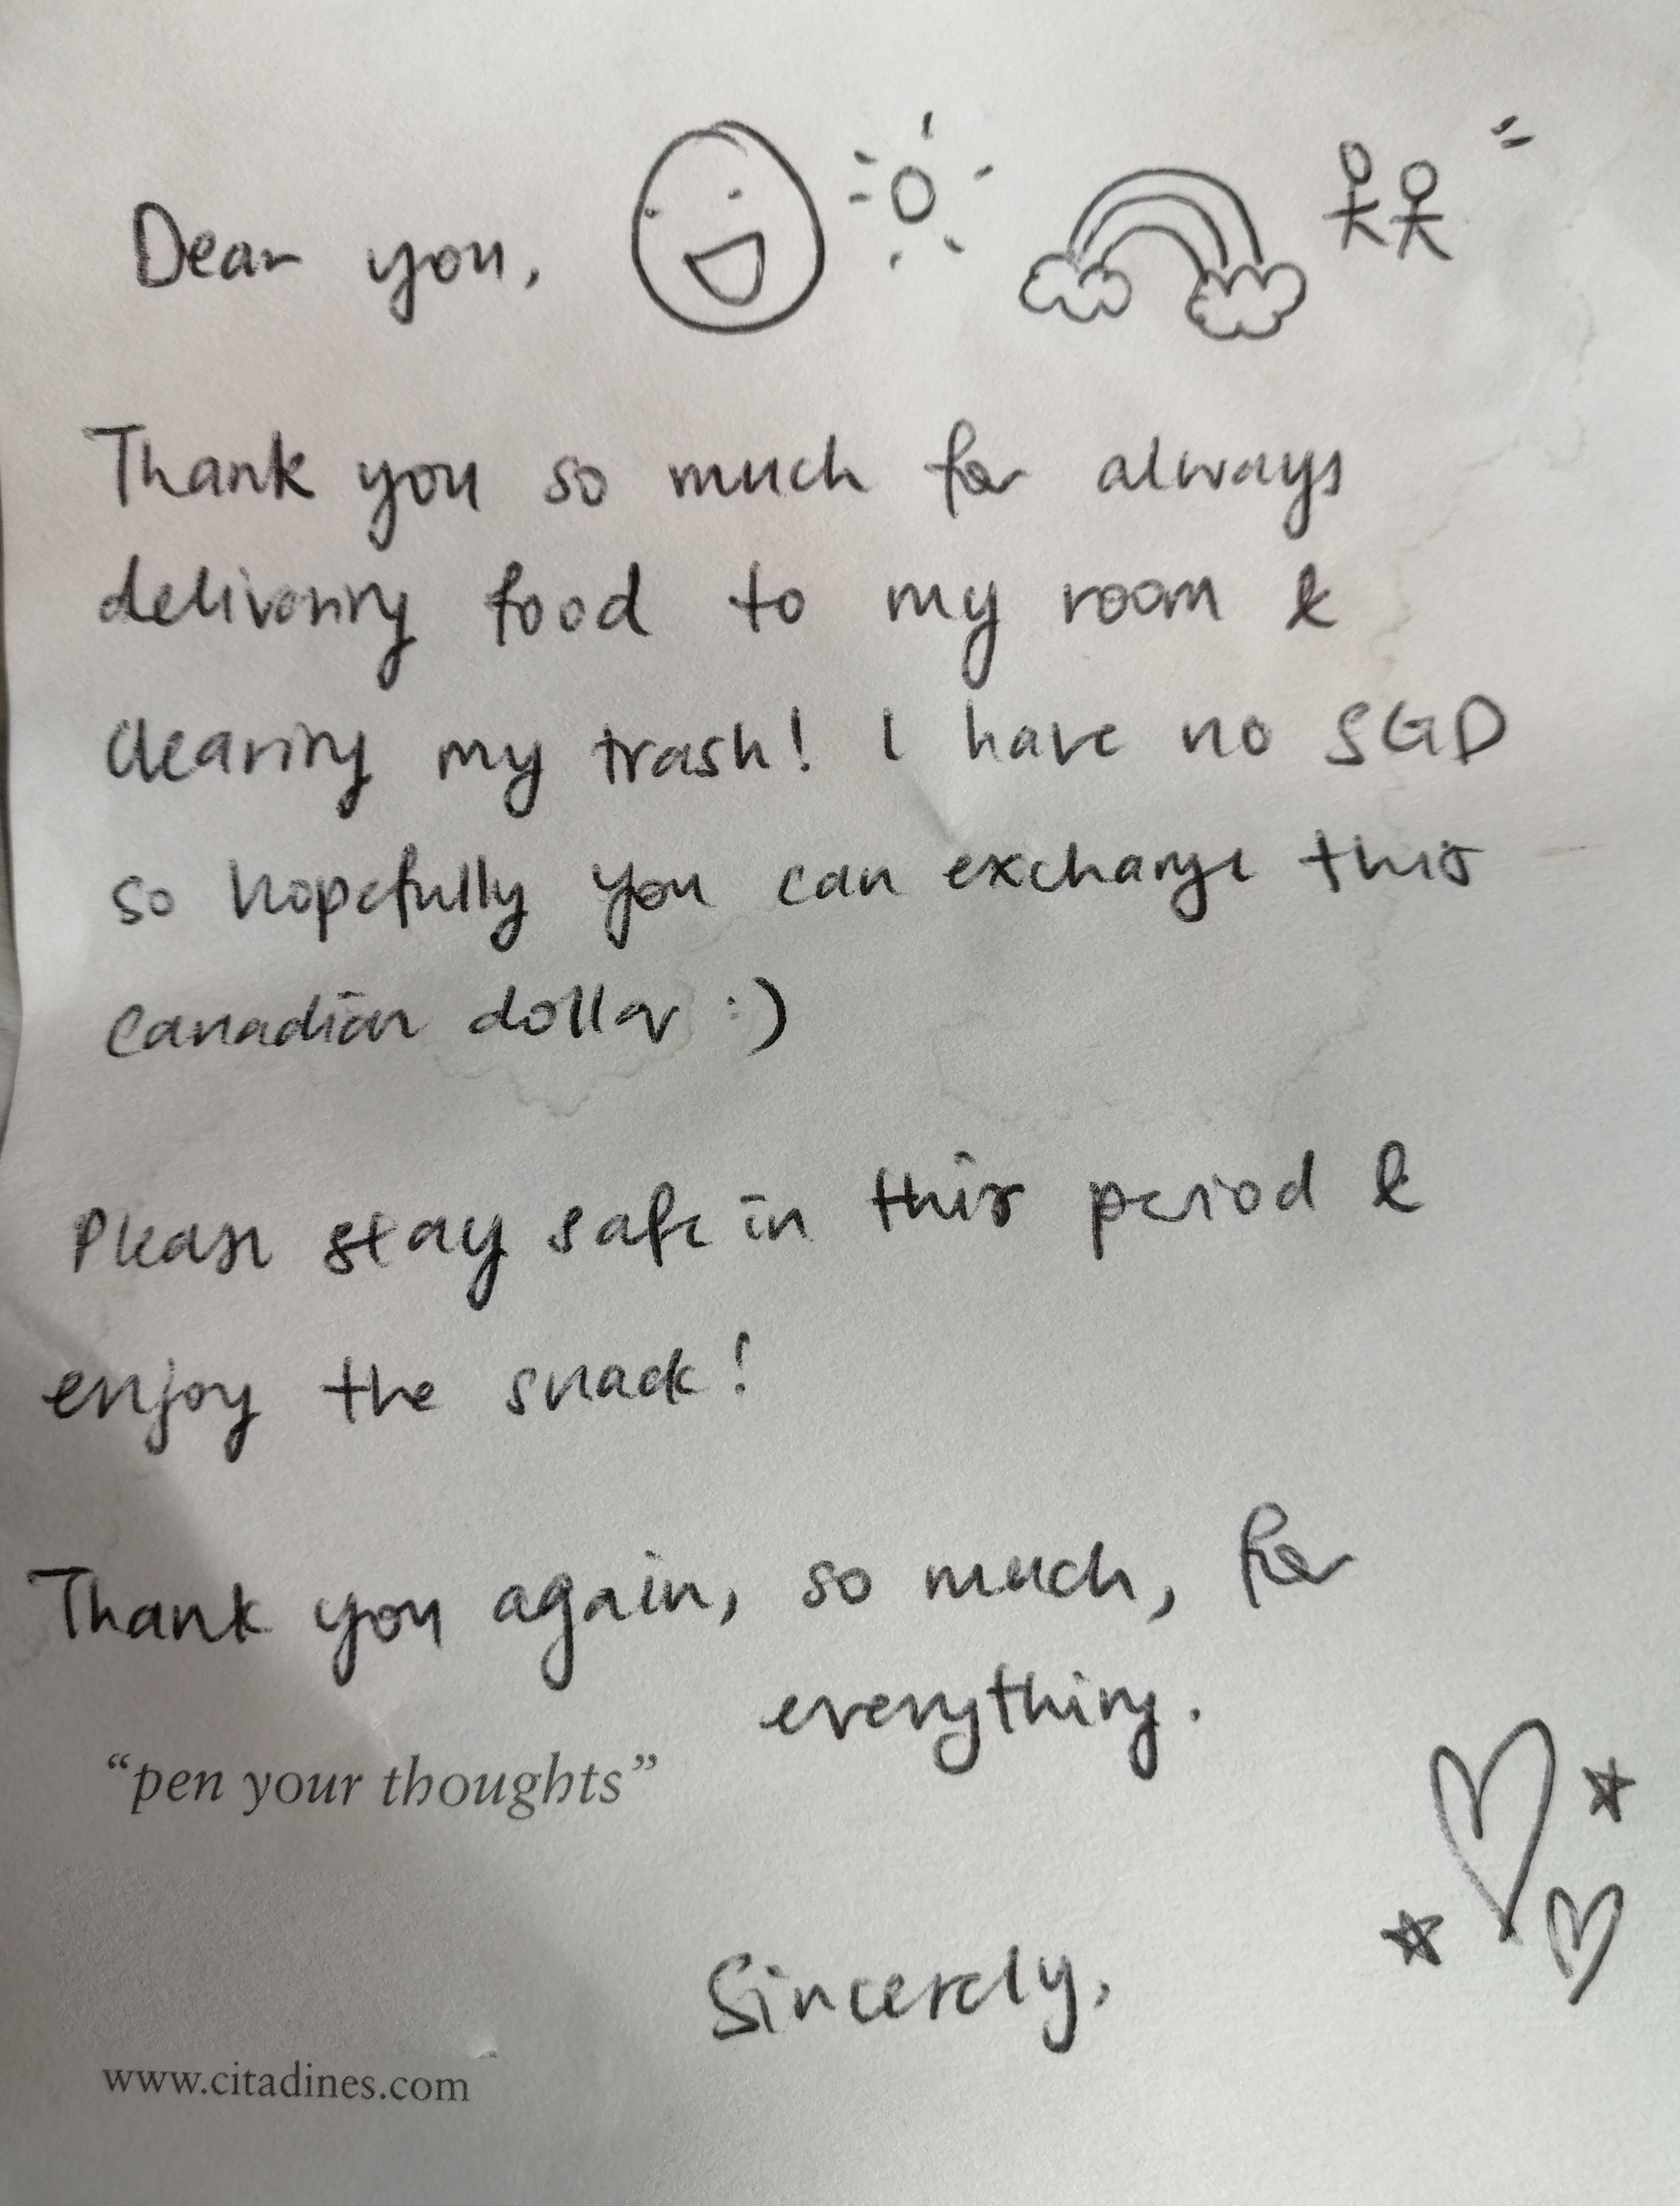 Dear you,
Thank you so much for always
delivering food to my room &
clearing my trash! I have no SGD
so hopefully you can exchange this
Canadian dollar :)
Please stay safe in this period &
enjoy the snack!
Thank you again, so much, for
everything.
"pen your thoughts"
Sincerely,
www.citadines.com